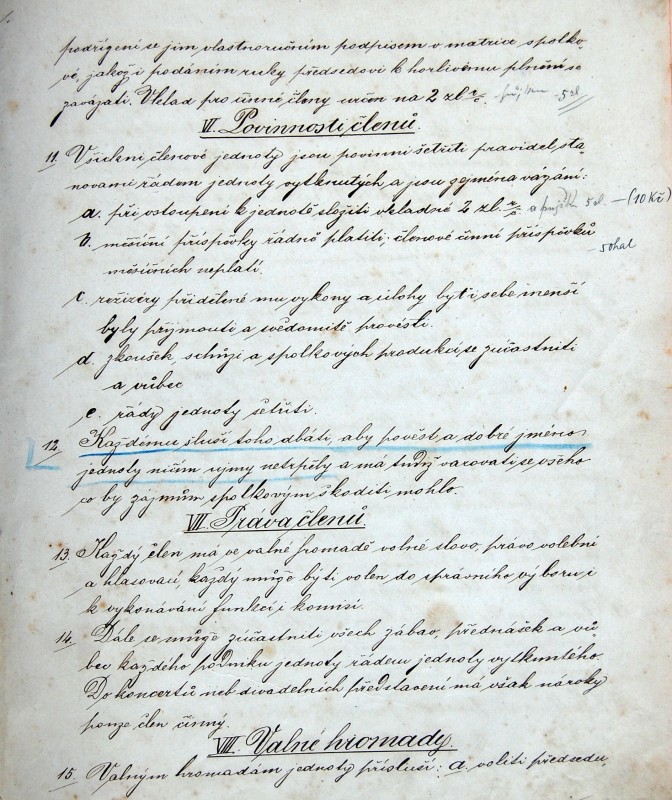 podřízení se jim vlastnoručním podpisem v matrice spolko-
vé, jakož i podáním ruky předsedovi k horlivému plnění se
zavázati. Vklad pro činné členy určen na 2 zl. 5 zl.
VI. Povinnosti členů.
11. Všickni členové jednoty jsou povinni šetřiti pravidel sta-
novami řádem jednoty vytknutých a jsou zejména vázáni:
a. při vstoupení k jednotě složiti vkladné 2 zl. 5 zl. — (10 Kč)
b. měsíční příspěvky řádně platiti; členové činní příspěvků
50 hal
měsíčních neplatí.
c. režiséry přidělené mu výkony a úlohy byť i sebe menší
byly přijmouti a svědomitě provésti.
d. zkoušek, schůzí a spolkových produkcí se zúčastniti
a vůbec
e. řády jednoty šetřiti.
12. Každému sluší toho dbáti, aby pověst a dobré jméno
jednoty ničím újmy netrpěly a má tudíž varovati se všeho
co by zájmům spolkovým škoditi mohlo.
VII. Práva členů.
13. Každý člen má ve valné hromadě volné slovo, právo volební
a hlasovací, každý může býti volen do správního výboru i
k vykonávání funkcí i komisí.
14. Dále se může zúčastniti všech zábav, přednášek a vů-
bec každého podniku jednoty řádem jednoty vytknutého.
Do koncertů neb divadelních představení má však nároky
pouze člen činný.
VIII. Valné hromady.
15. Valným hromadám jednoty přísluší: a. voliti předsedu,